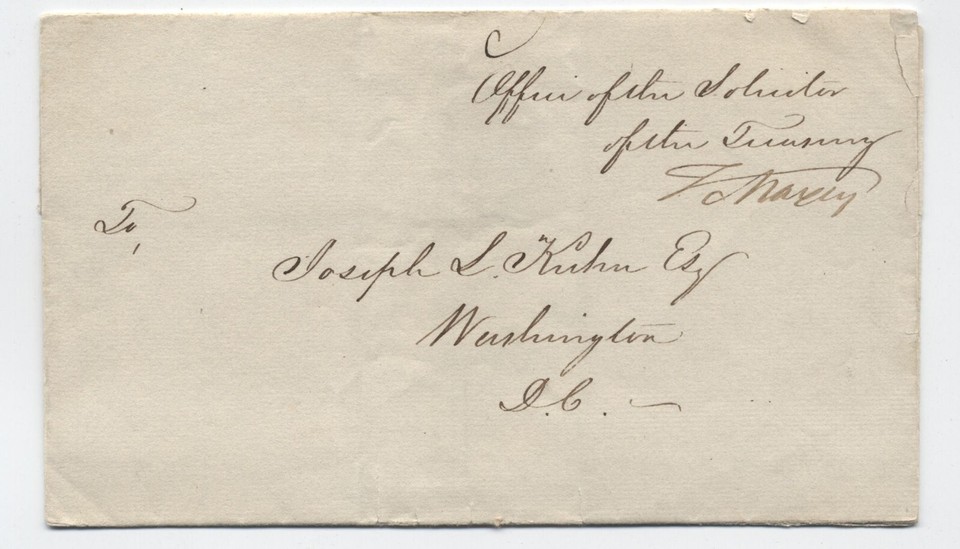 Office of the Solicitor
of the Treasury
V. Maxey
To,
Joseph L. Kuhn Esq
Washington
D.C. —